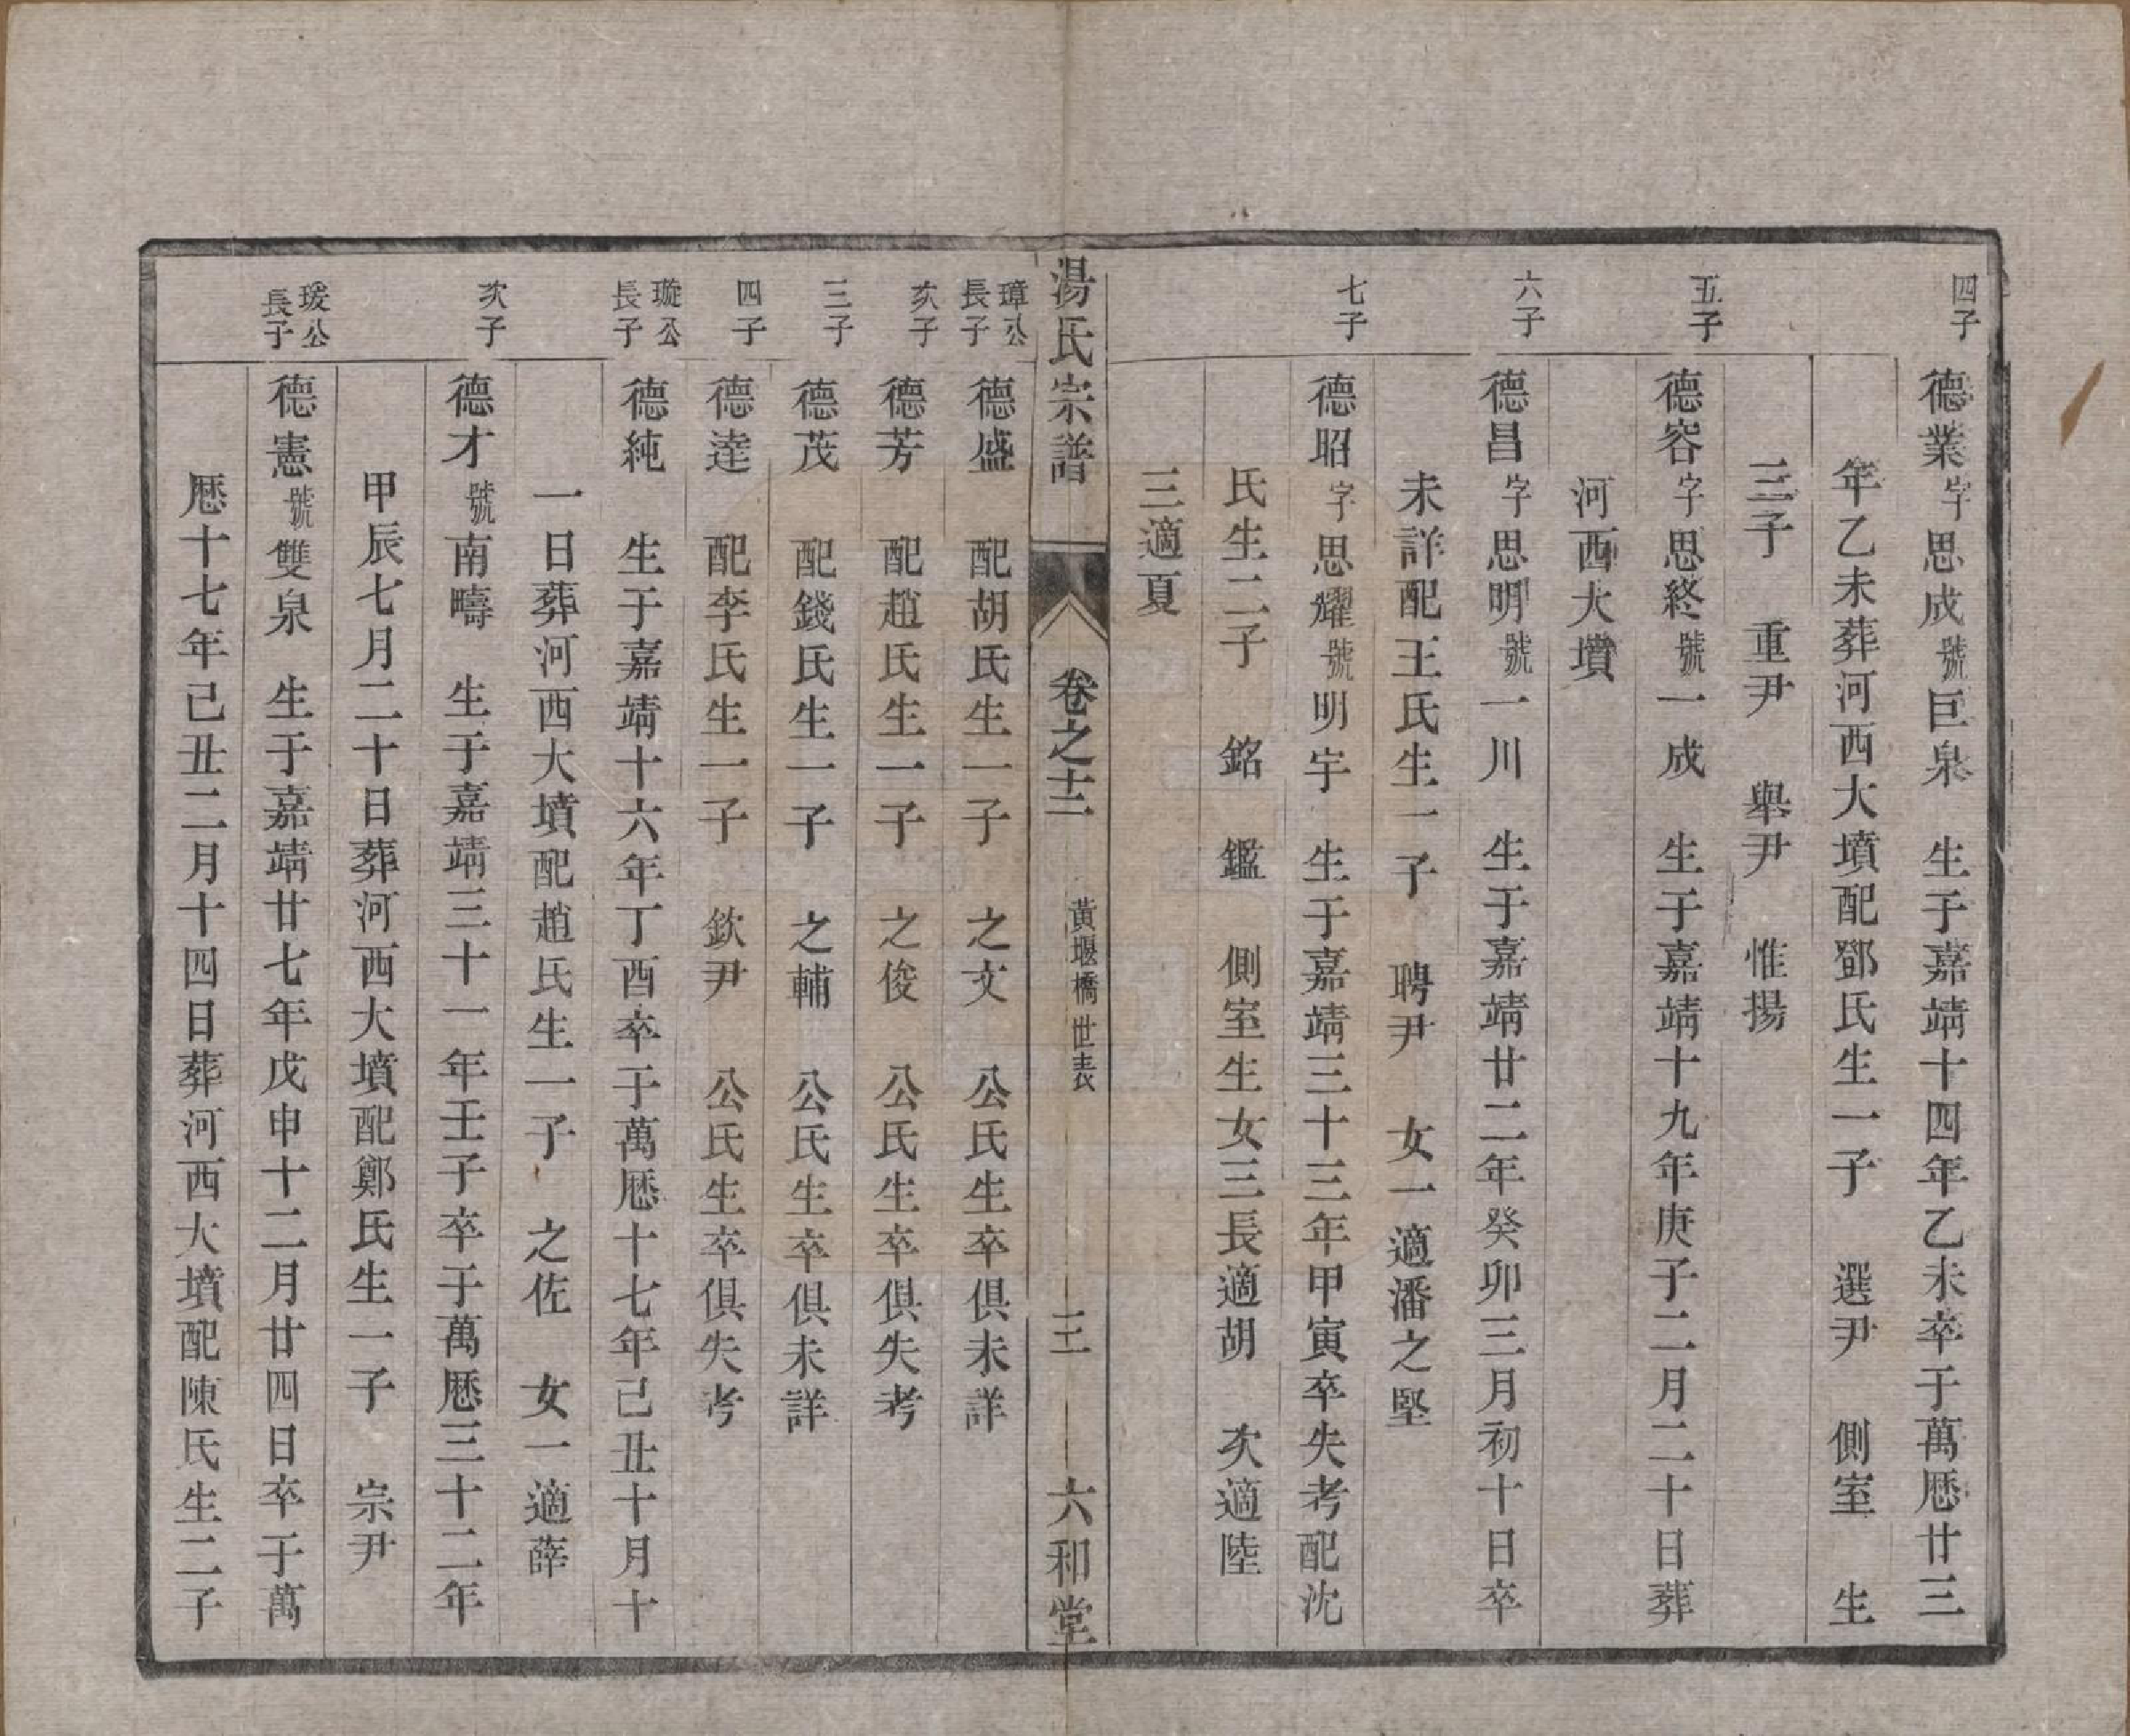 四子
德業字思成號巨泉　生于嘉靖十四年乙未卒于萬厯廿三
年乙未葬河西大墳配鄧氏生一子　選尹　側室　生
三子　重尹　舉尹　惟揚
五子
德容字思終號一成　生于嘉靖十九年庚子二月二十日葬
河西大墳
六子
德昌字思明號一川　生于嘉靖廿二年癸卯三月初十日卒
未詳配王氏生一子　聘尹　女一適潘之堅
七子
德昭字思耀號明宇　生于嘉靖三十三年甲寅卒失考配沈
氏生二子　銘　鑑　側室生女三長適胡　次適陸
三適夏
湯氏宗譜　卷之十二　黃堰橋世表　三　六和堂
璋公長子
德盛　配胡氏生一子　之文　公氏生卒俱未詳
次子
德芳　配趙氏生一子　之俊　公氏生卒俱失考
三子
德茂　配錢氏生一子　之輔　公氏生卒俱未詳
四子
德達　配李氏生一子　欽尹　公氏生卒俱失考
璇公長子
德純　生于嘉靖十六年丁酉卒于萬厯十七年己丑十月十
一日葬河西大墳配趙氏生一子　之佐　女一適薛
次子
德才號南疇　生于嘉靖三十一年壬子卒于萬厯三十二年
甲辰七月二十日葬河西大墳配鄭氏生一子　宗尹
瑗公長子
德憲號雙泉　生于嘉靖廿七年戊申十二月廿四日卒于萬
厯十七年己丑二月十四日葬河西大墳配陳氏生二子